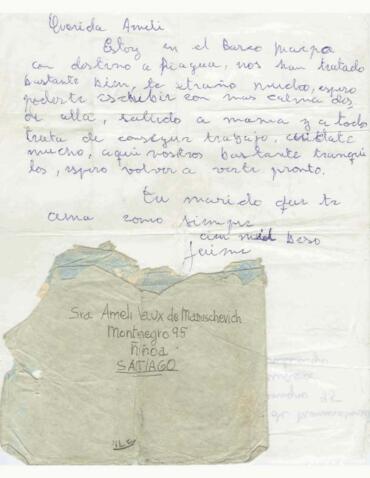 Querida Ameli
Estoy en el Barco Maipo
con destino a Pisagua, nos han tratado
bastante bien, te extraño mucho, espero
poderte escribir con mas calma des
de alla, saludo a mama y a todos
trata de conseguir trabajo, cuidate
mucho, aqui nosotros bastante tranqui
los, espero volver a verte pronto.
Tu marido que te
ama como siempre
un beso
Jaime
Sra Ameli de Maruschevich
Montnegro 95
Ñiñoa
SATIAGO